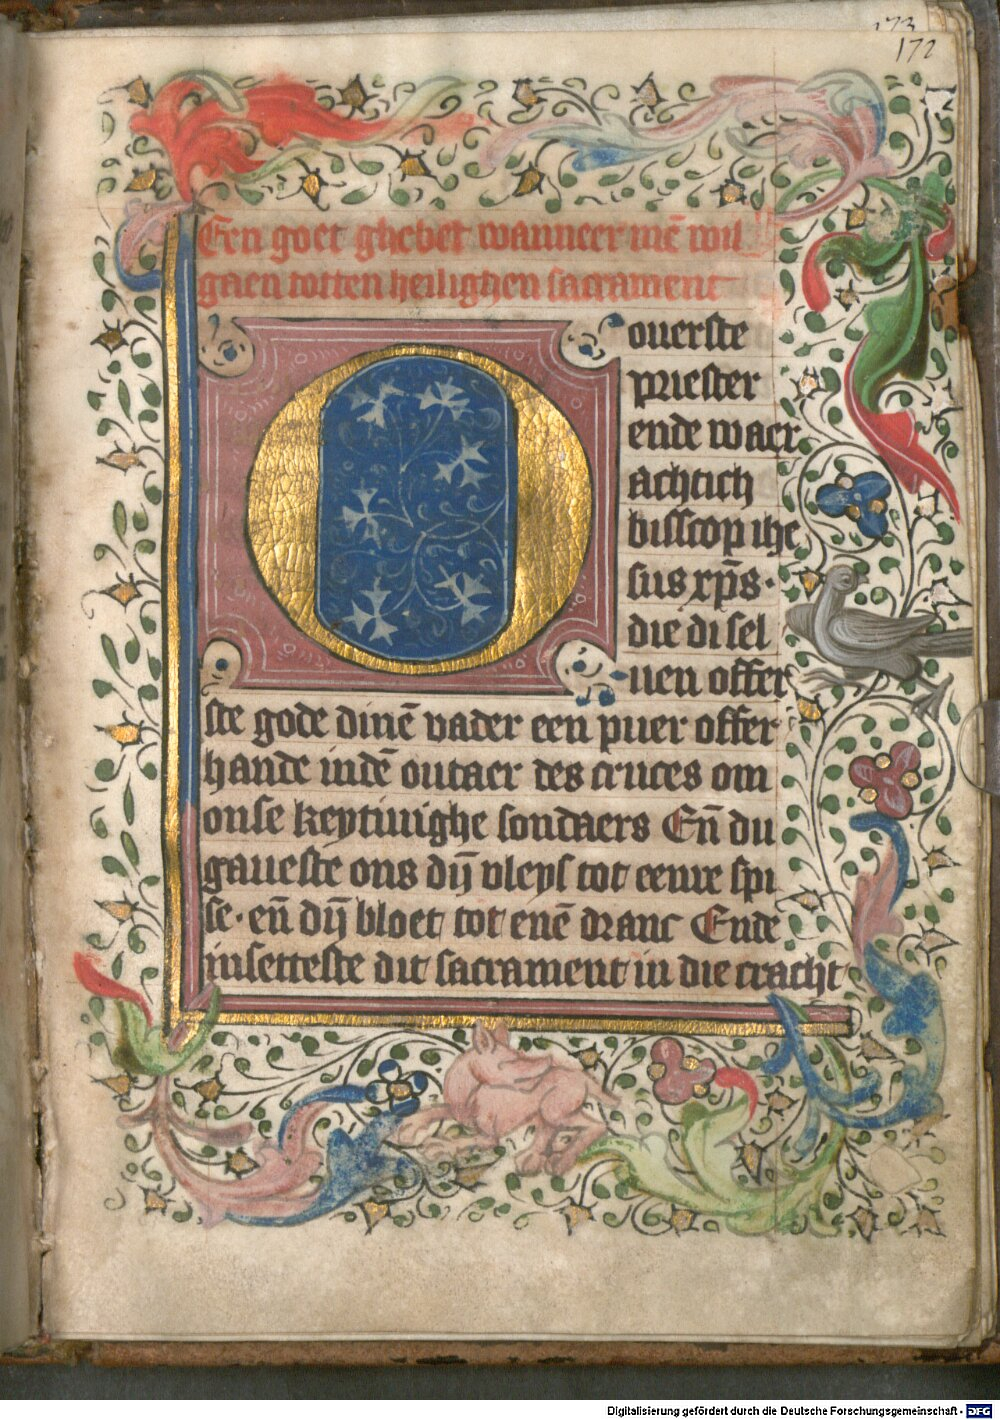 173
172
Een goet ghebet wanneer mē wil
gaen totten heilighen sacrament
O ouerste
priester
ende waer
achtich
bisscop ihe
sus xp̄s·
die di sel
uen offer
ste gode dinē vader een puer offer
hande indē outaer des cruces om
onse keytiuighe sondaers Eñ du
gaueste ons dij vleys tot eenre spi
se· eñ dij bloet tot enē dranc Ende
insetteste dit sacrament in die cracht
Digitalisierung gefördert durch die Deutsche Forschungsgemeinschaft - DFG